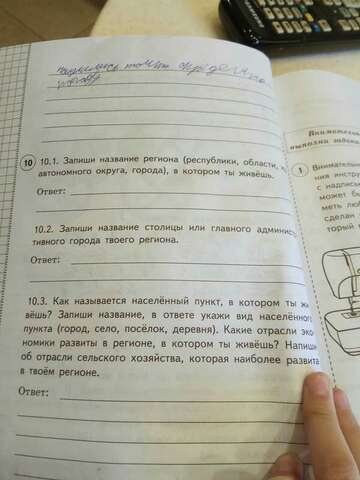 10 10.1. Запиши название региона (республики, области,
автономного округа, города), в котором ты живёшь.
Ответ:
10.2. Запиши название столицы или главного админис
тивного города твоего региона.
Ответ:
10.3. Как называется населённый пункт, в котором ты жи
вёшь? Запиши название, в ответе укажи вид населённого
пункта (город, село, посёлок, деревня). Какие отрасли эко
номики развиты в регионе, в котором ты живёшь? Напиши
об отрасли сельского хозяйства, которая наиболее развита
в твоём регионе.
Ответ:
Внимательн
выполни задани
1 Внимательн
ния инстру
с надписью
может бы
меть люб
сделан
торый